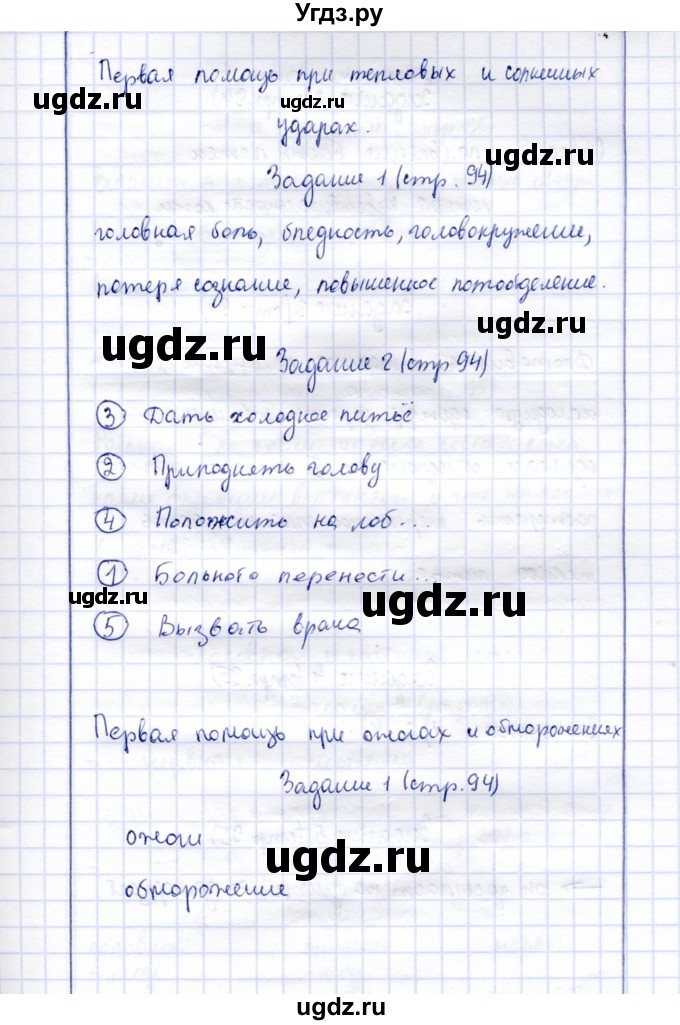 Угдз.ру
Первая помощь при тепловых и солнечных
ugdz.ru ugdz.ru
ударах.
ugdz.ru
Задание 1 (стр. 94)
головная боль, бледность, головокружение,
потеря сознание, повышенное потообделение.
ugdz.ru
ugdz.ru
Задание 2 (стр 94)
3 Дать холодное питьё
2 Приподнять голову
4 Положить на лоб...
1 Больного перенести...
ugdz.ru ugdz.ru
5 Вызвать врача
Первая помощь при ожогах и обморожениях
Задание 1 (стр. 94)
ожоги
ugdz.ru
обморожение
ugdz.ru